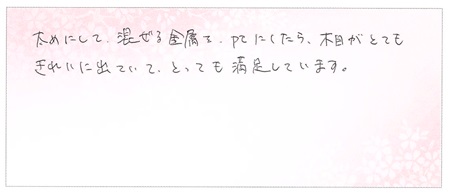 太めにして、混ぜる金属を、Ptにしたら、木目がとても
きれいに出ていて、とっても満足しています。